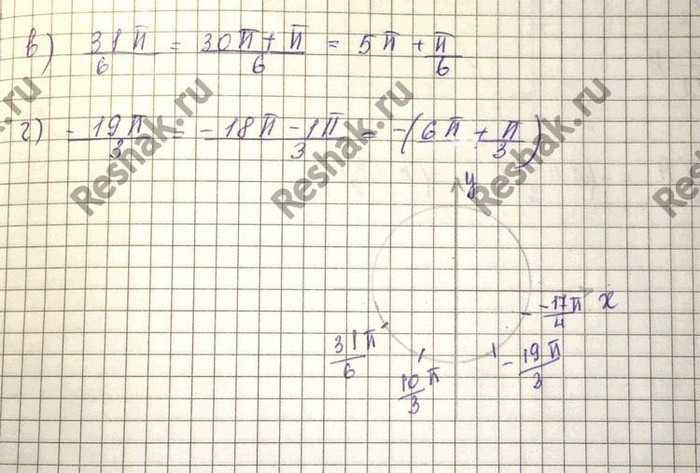 в) 31π/6 = 30π+π/6 = 5π + π/6
г) -19π/3 = -18π-1π/3 = -(6π + π/3)
y
-17π/4 x
31π/6
10π/3
-19π/3
Reshak.ru
Reshak.ru
Reshak.ru
Reshak.ru